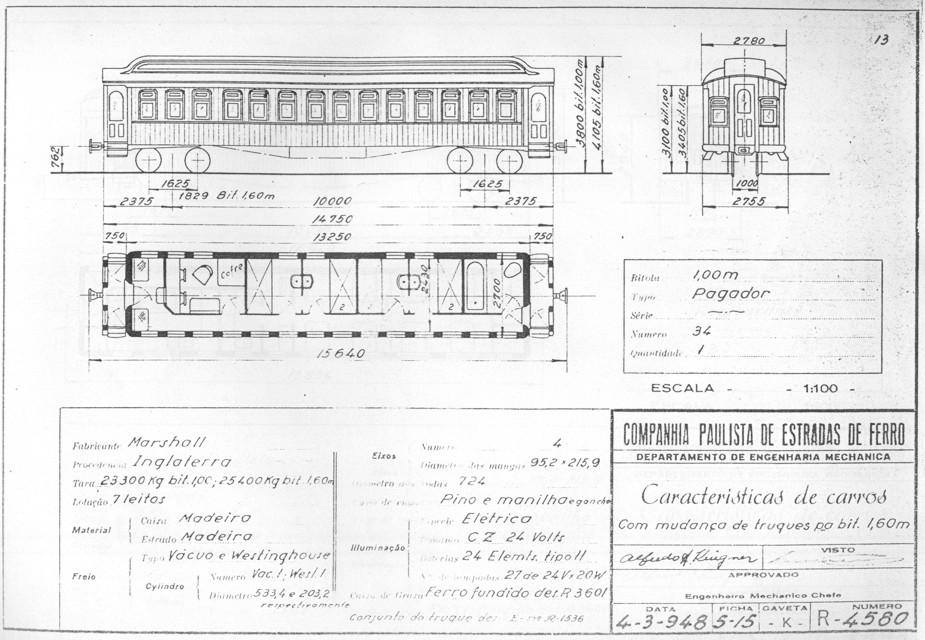 13
2780
3800 bit.1,00m
4105 bit.1,60m
3100 bit.1,00
3405 bit.1,60
762
1625
1625
1829 Bit.1,60m
2375
10000
2375
14750
750
13250
750
1000
2755
Cofre
2430
2700
2
2
2
15640
Bitola 1,00m
Typo Pagador
Série
Numero 34
Quantidade 1
ESCALA - - 1:100 -
Fabricante Marshall
Procedencia Inglaterra
Tara 23300 Kg bit.1,00; 25400 Kg bit.1,60m
Lotação 7 leitos
Material
Caixa Madeira
Estrado Madeira
Freio
Typo Vácuo e Westinghouse
Cylindro
Numero Vac.1; West.1
Diametro 533,4 e 203,2
respectivamente
Eixos
Numero 4
Diametro das mangas 95,2 x 215,9
Diametro das rodas 724
Pino e manilha e gancho
Illuminação
Especie Elétrica
CZ 24 Volts
Baterias 24 Elemts. tipo 11
Nº de lampadas 27 de 24V x 20W
Caixa de Graxa Ferro fundido des. R 3601
Conjunto do truque des. E-m R-1536
COMPANHIA PAULISTA DE ESTRADAS DE FERRO
DEPARTAMENTO DE ENGENHARIA MECHANICA
Caracteristicas de carros
Com mudança de truques pa bit. 1,60m
VISTO
APPROVADO
Engenheiro Mechanico Chefe
DATA
4-3-948
FICHA
5-15
GAVETA
-K-
NUMERO
R-4580